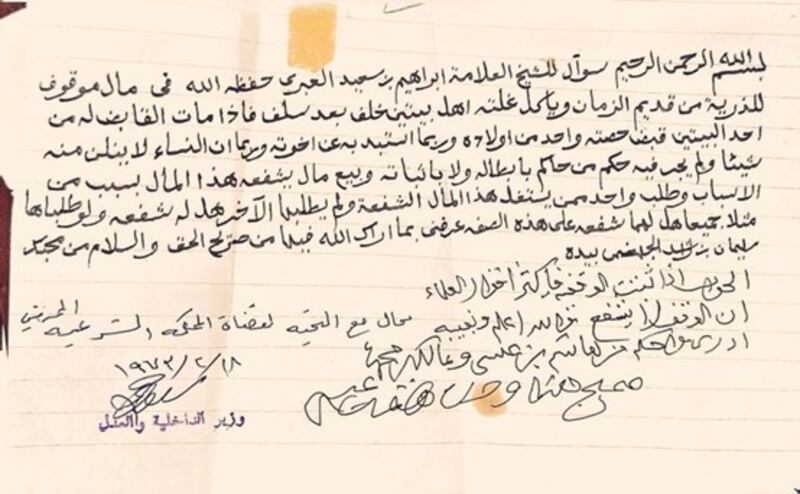 بسم الله الرحمن الرحيم سوآل للشيخ العلامة ابراهيم بن سعيد العبري حفظه الله في مال موقوف
للذرية من قديم الزمان ويأكل غلته اهل بيتين خلف بعد سلف فاذا مات القابض له من
احد البيتين قبض حصته واحد من اولاده وربما استبد به عن اخوته وربما ان النساء لا ينلن منه
شيئا ولم يجر فيه حكم من حاكم بابطاله ولا باثباته وبيع مال يشفعه هذا المال بسبب من
الاسباب وطلب واحد ممن يستغل هذا المال الشفعة ولم يطلبها الآخر هل له شفعه ولو طلباها
مثلا جميعا هل لهما شفعه على هذه الصفه عرفني بما اراك الله فيها من صريح الحق والسلام من محبك
سليمان بن راشد الجهضمي بيده
الجواب اذا ثبتت الوقفيه فاكثر اقوال العلماء
ان الوقف لا يشفع والله اعلم
محال مع التحيه لقضاة المحكمه الشرعيه
١٩٧٣/٢/١٨
وزير الداخلية والعدل